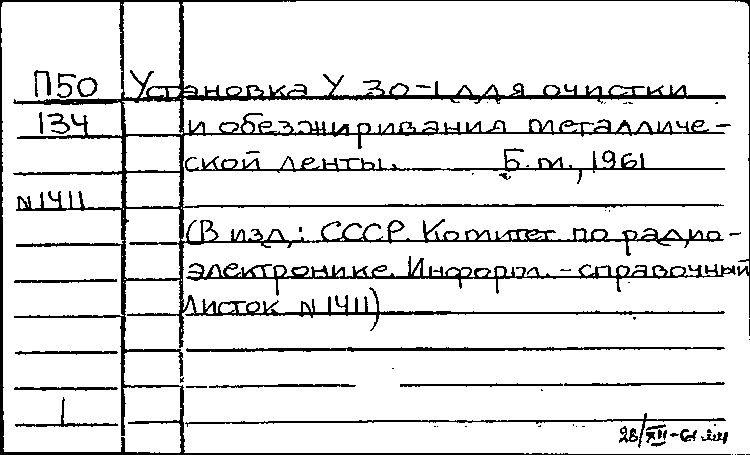 П50 Установка У 30-1 для очистки
134 и обезжиривания металличе-
ской ленты. Б.м., 1961
N 1411
(В изд.: СССР. Комитет по радио-
электронике. Информ.-справочный
листок N 1411)
1
28/XII-61